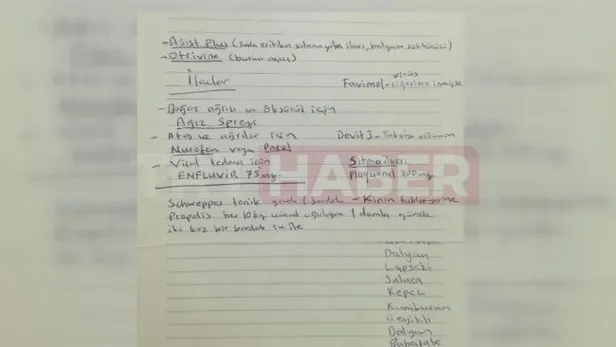 - Asist Plus (suda eritilen solunum yolu ilacı, balgam söktürücü)
- Otrivine (burun açıcı)
İlaçlar
virüs
Favimol - ciğerlere inmişse
- Boğaz ağrısı ve öksürük için
Ağız Spreyi
- Ateş ve ağrılar için Devit 3 - Takviye vitamin
Nurofen veya Parol
- Viral tedavi için Sıtma ilacı
ENFLUVIR 75 mg Plaquenil 200 mg
HABER
Schweppes tonik günde 1 bardak - Kinin
Propolis her 10 kg vücud ağırlığına 1 damla günde
iki kez bir bardak su ile
Dalyan
Lapseki
Saluca
Kepez
Kumburun
Geyikli
Dalyan
Babakale